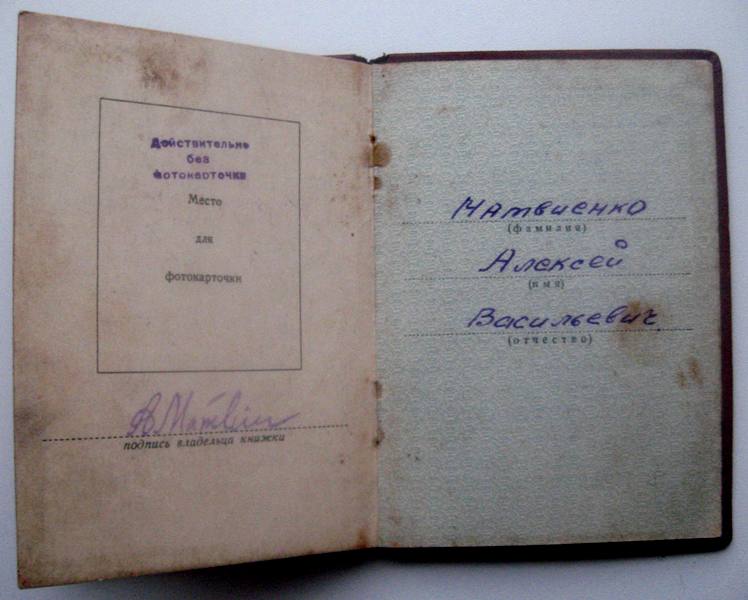 Действительно
без
фотокарточки
Место
для
фотокарточки
А Матвиен
подпись владельца книжки
Матвиенко
(фамилия)
Алексей
(имя)
Васильевич
(отчество)